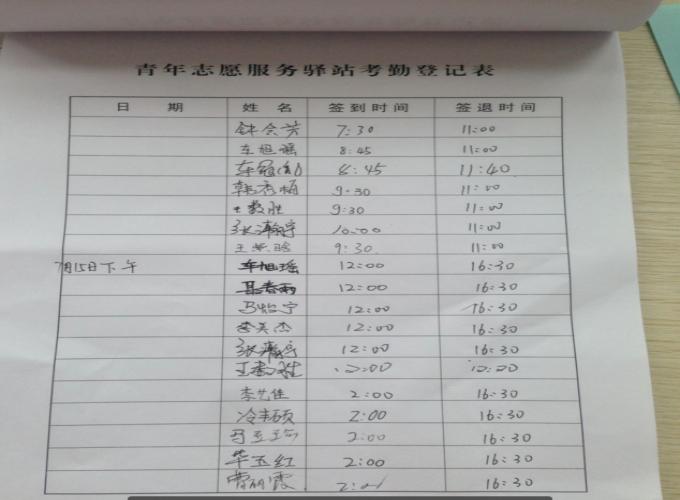 青年志愿服务驿站考勤登记表
日 期 姓 名 签到时间 签退时间
钟会芳 7:30 11:00
车旭瑶 8:45 11:00
8:45 11:40
韩秀梅 9:30 11:00
9:30 11:00
张瀚宇 10:00 11:00
王 9:30 11:00
7月15日下午 车旭瑶 12:00 16:30
12:00 16:30
马怡宁 12:00 16:30
李美杰 12:00 16:30
张瀚宇 12:00 16:30
王 12:00
李艺佳 2:00 16:30
冷丰硕 2:00 16:30
马玉 2:00 16:30
华玉红 2:00 16:30
曹丽霞 16:30